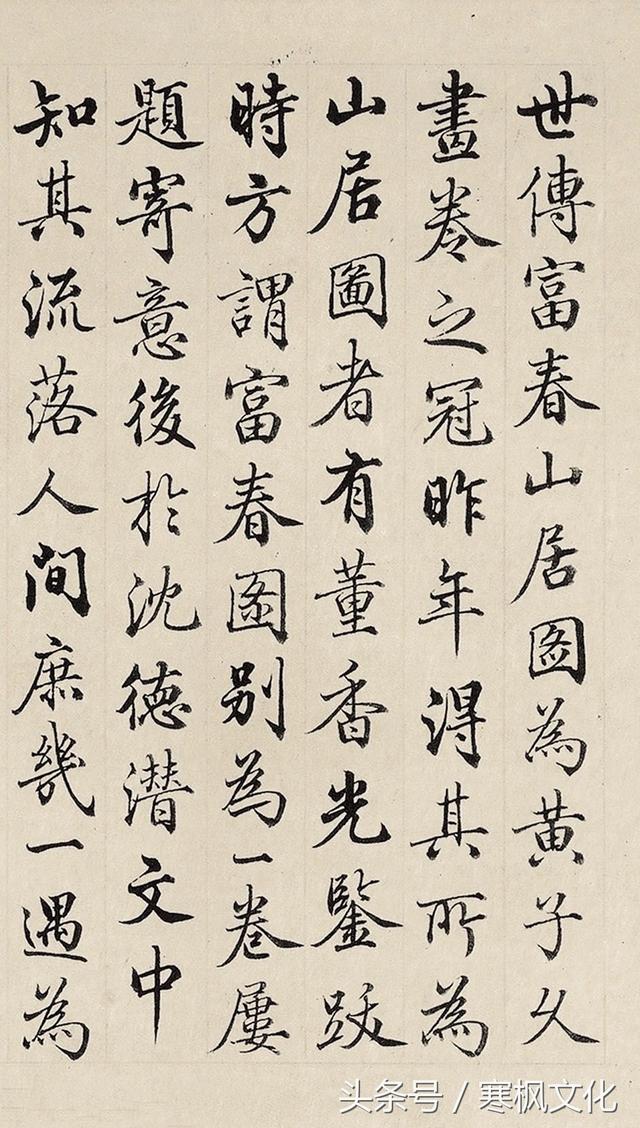 世傳富春山居圖為黃子久
畫卷之冠昨年得其所為
山居圖者有董香光鑒跋
時方謂富春圖別為一卷屢
題寄意後於沈德潛文中
知其流落人間庶幾一遇為
头条号 / 寒枫文化